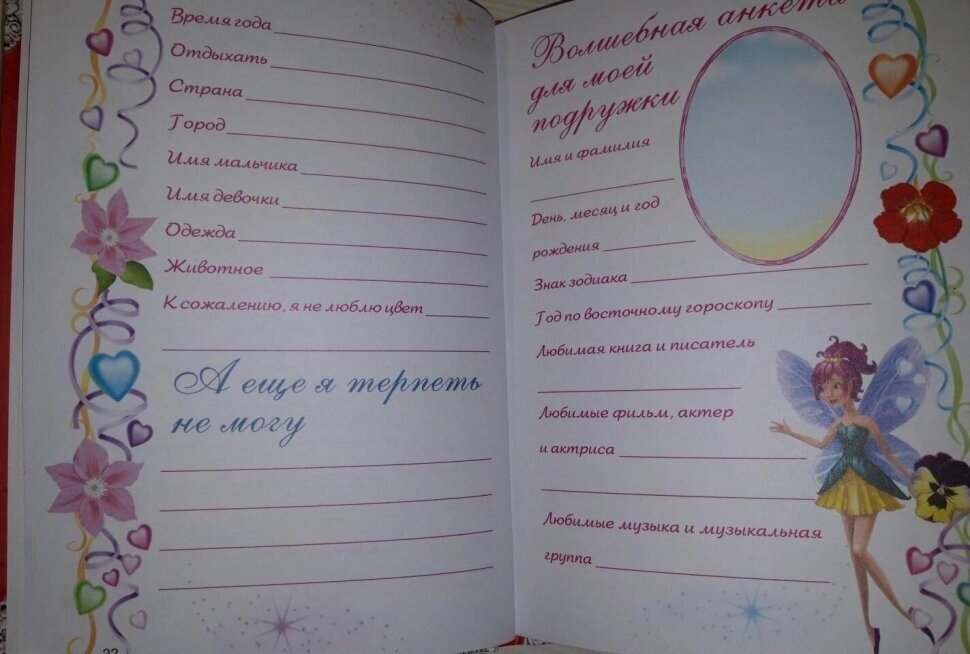 Время года
Отдыхать
Страна
Город
Имя мальчика
Имя девочки
Одежда
Животное
К сожалению, я не люблю цвет
А еще я терпеть
не могу
Волшебная анкета
для моей
подружки
Имя и фамилия
День, месяц и год
рождения
Знак зодиака
Год по восточному гороскопу
Любимая книга и писатель
Любимые фильм, актер
и актриса
Любимые музыка и музыкальная
группа